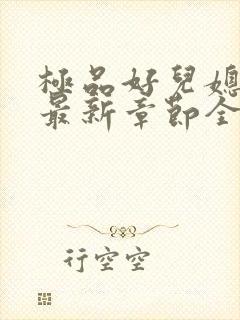 極品好兒媳
最新章節全
行空空